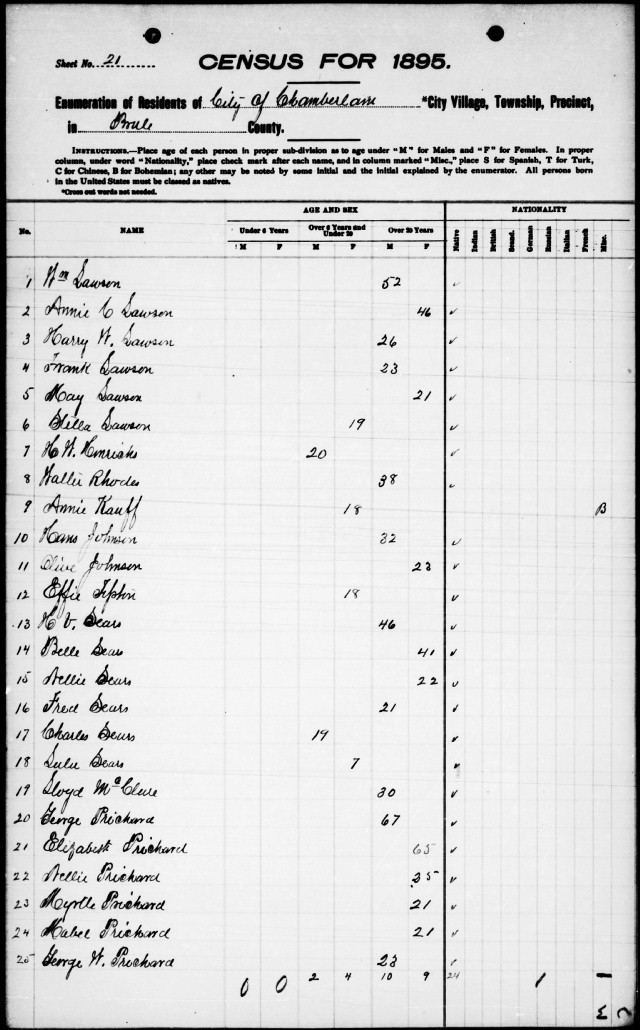 Sheet No. 21
CENSUS FOR 1895.
Enumeration of Residents of City of Chamberlain *City Village, Township, Precinct,
in Brule County.
INSTRUCTIONS.—Place age of each person in proper sub-division as to age under "M" for Males and "F" for Females. In proper
column, under word "Nationality," place check mark after each name, and in column marked "Misc.," place S for Spanish, T for Turk,
C for Chinese, B for Bohemian; any other may be noted by some initial and the initial explained by the enumerator. All persons born
in the United States must be classed as natives.
*Cross out words not needed.
AGE AND SEX NATIONALITY
No. NAME Under 6 Years Over 6 Years and Under 20 Over 20 Years Native Indian British Scand. German Russian Italian French Misc.
M F M F M F
1 Wm Lawson 52 ✓
2 Annie C Lawson 46 ✓
3 Harry W. Lawson 26 ✓
4 Frank Lawson 23 ✓
5 May Lawson 21 ✓
6 Stella Lawson 19 ✓
7 H W. Hinrichs 20 ✓
8 Wallie Rhodes 38 ✓
9 Annie Kauff 18 B
10 Hans Johnson 32 ✓
11 Olive Johnson 23 ✓
12 Effie Tiptin 18 ✓
13 H V. Sears 46 ✓
14 Belle Sears 41 ✓
15 Nellie Sears 22 ✓
16 Fred Sears 21 ✓
17 Charles Sears 19 ✓
18 Lulu Sears 7 ✓
19 Lloyd McClure 30 ✓
20 George Prichard 67 ✓
21 Elizabeth Prichard 65 ✓
22 Nellie Prichard 25 ✓
23 Myrtle Prichard 21 ✓
24 Mabel Prichard 21 ✓
25 George W. Prichard 23 ✓
0 0 2 4 10 9 24 1